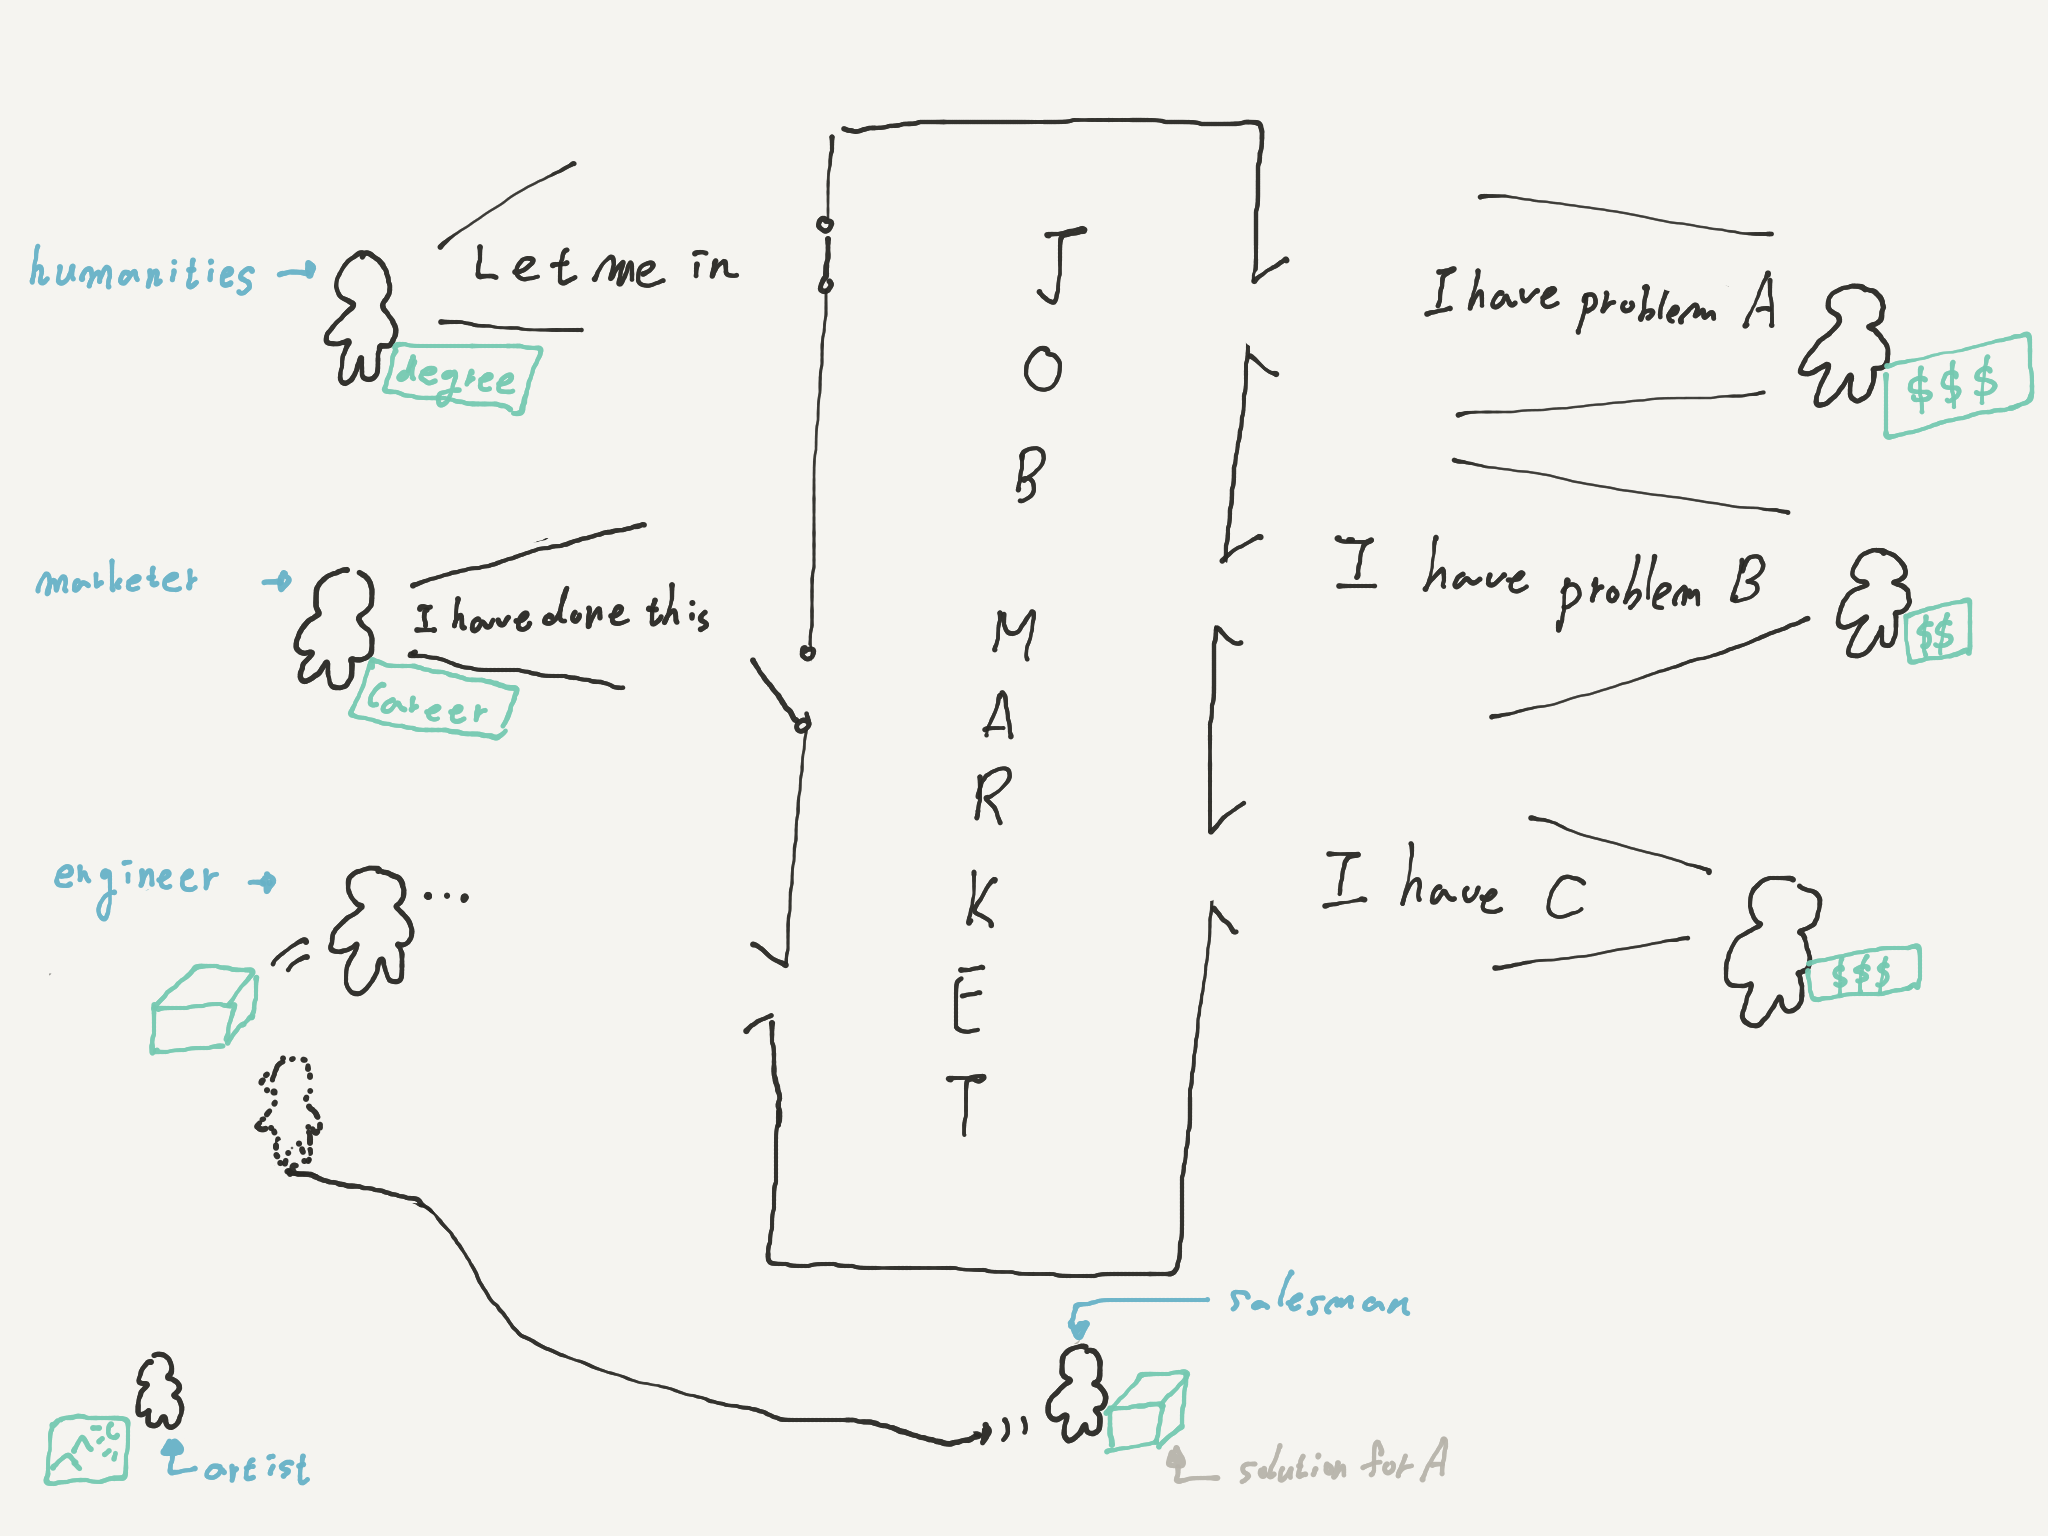 humanities
Let me in
degree
marketer
I have done this
Career
engineer
...
artist
JOB MARKET
I have problem A
$$$
I have problem B
$$
I have C
$$$
salesman
solution for A